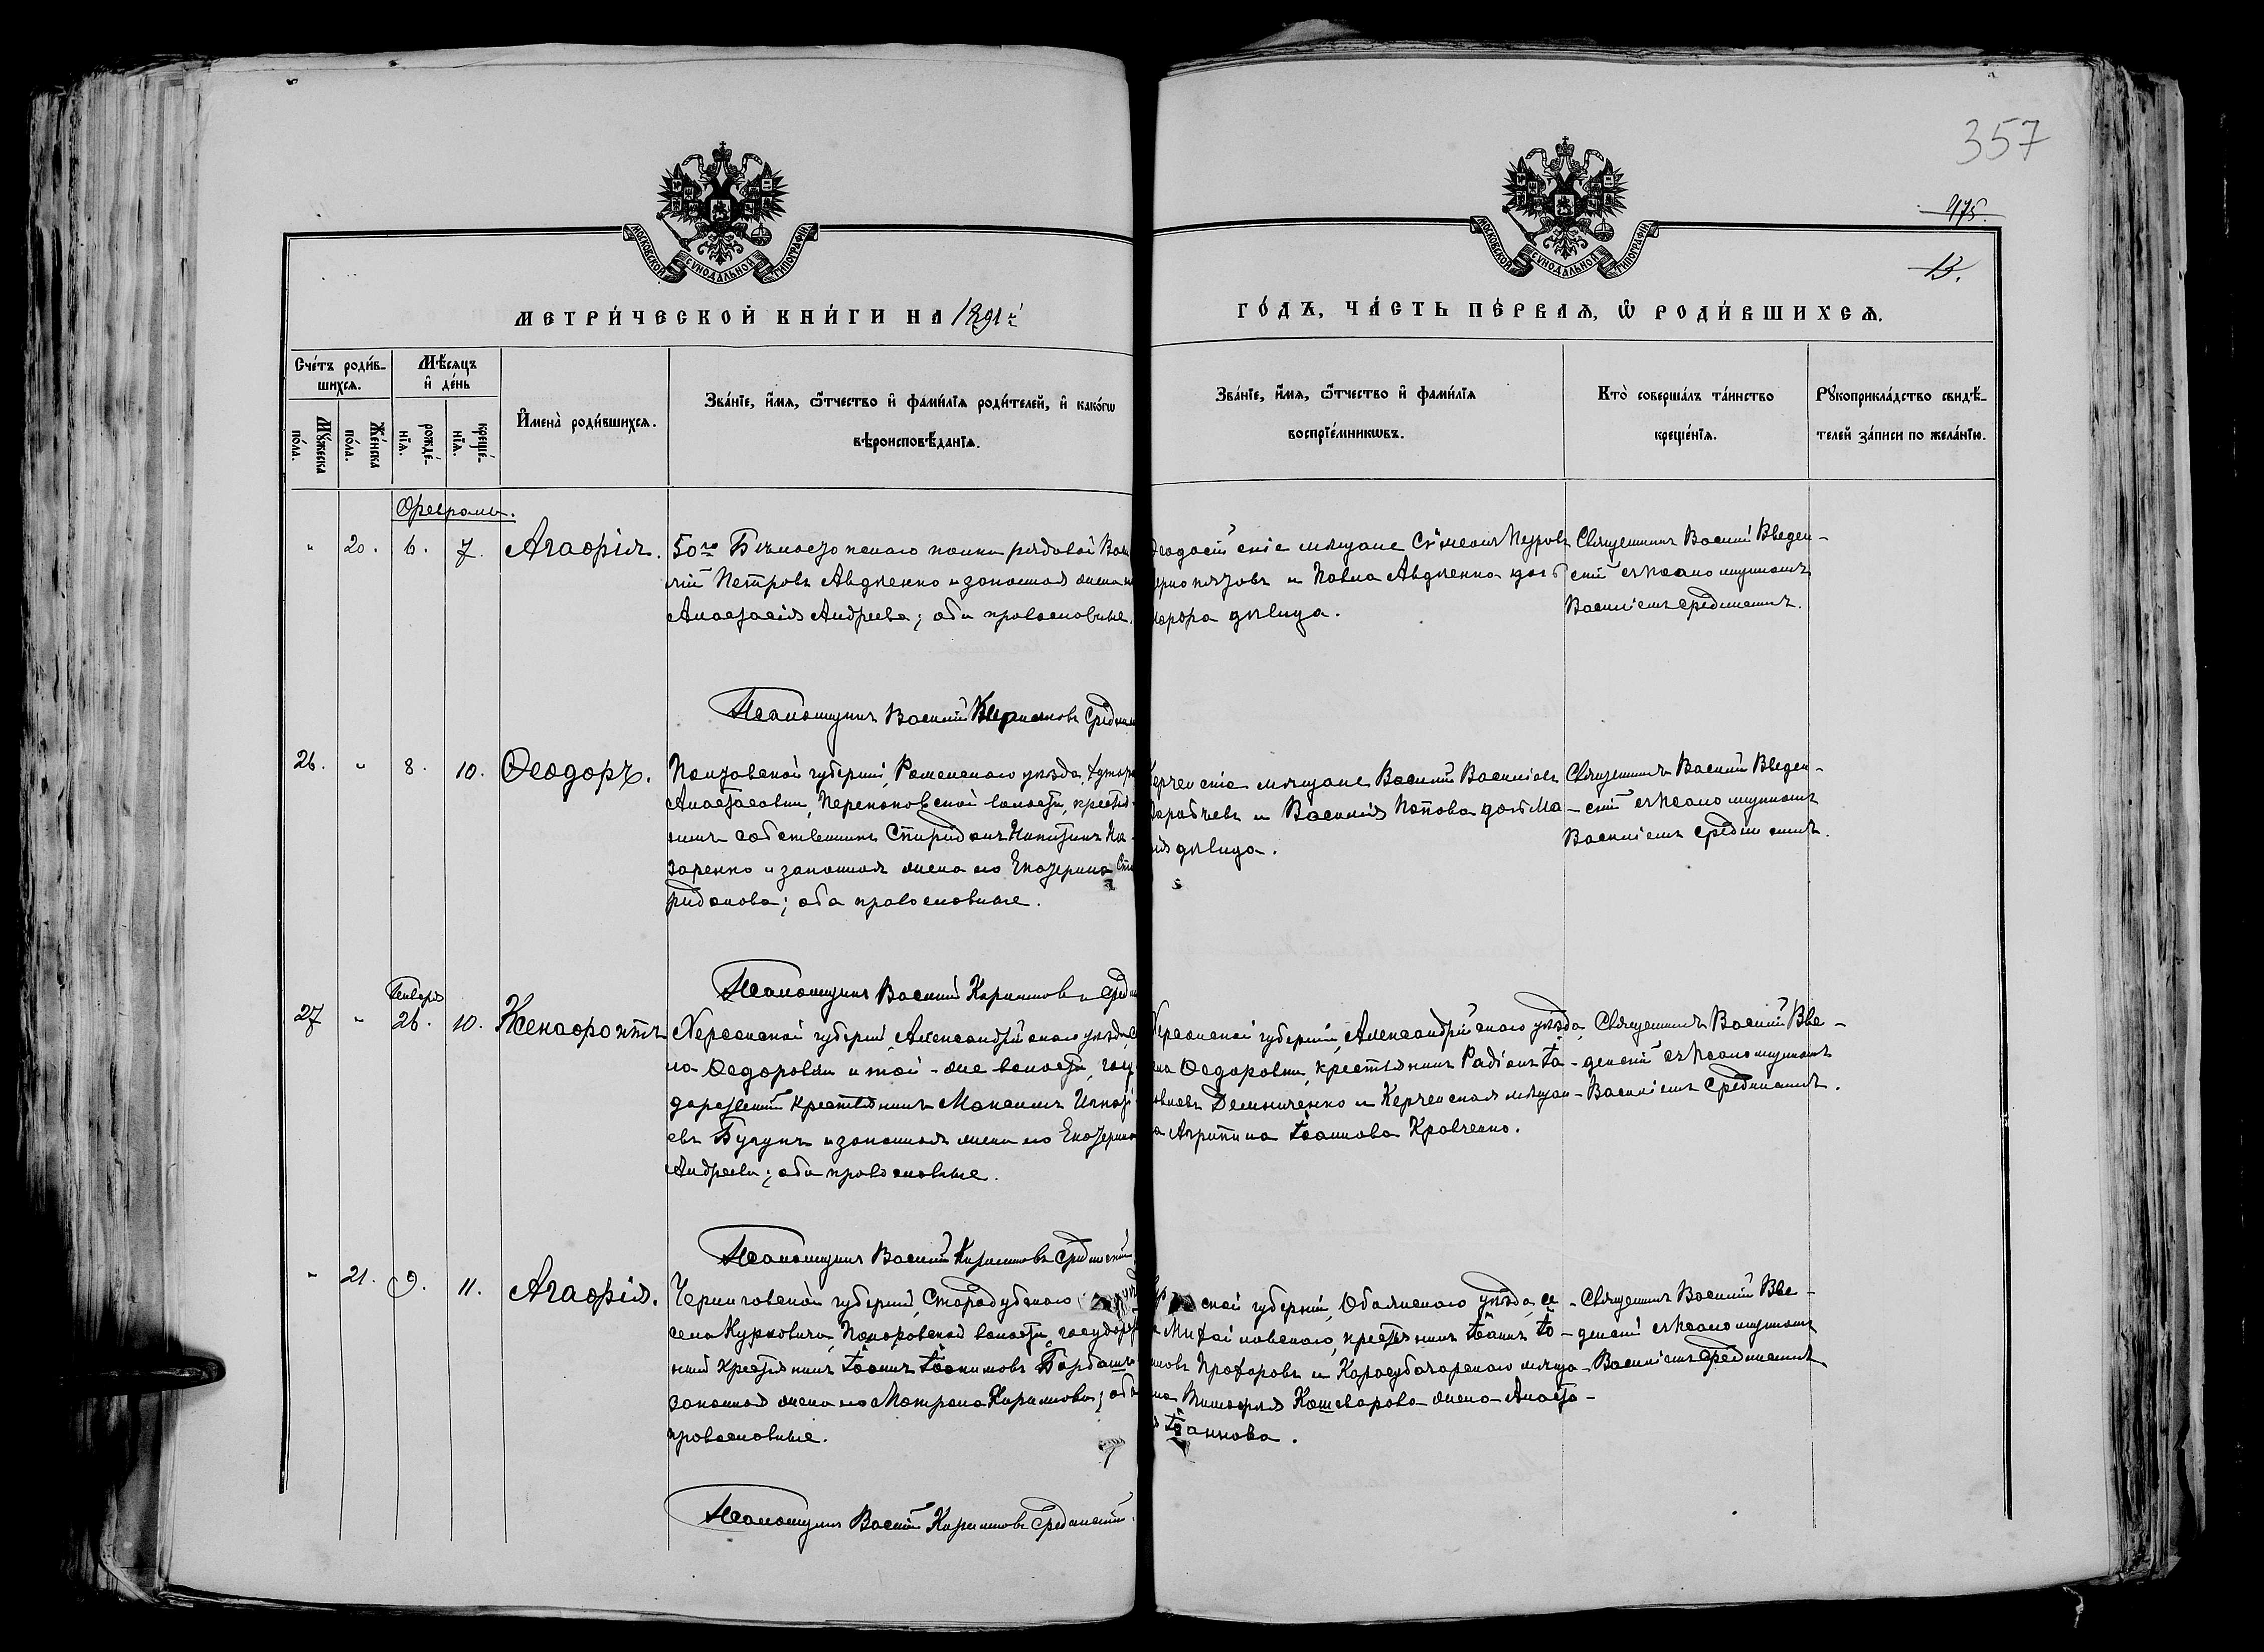 357
975.
13.
МОСКОВСКОЙ СѴНОДАЛЬНОЙ ТИПОГРАФІИ
МОСКОВСКОЙ СѴНОДАЛЬНОЙ ТИПОГРАФІИ
МЕТРИ́ЧЕСКОЙ КНИ́ГИ НА 1891й
ГО́ДЪ, ЧА́СТЬ ПЕ́РВАѦ, Ѽ РОДИ́ВШИХСѦ.
Сче́тъ роди́в-
шихсѧ.
Мѣ́сѧцъ
и҆ де́нь
Мꙋ́жеска по́ла.
Же́нска по́ла.
рожде́-нїѧ.
креще́-нїѧ.
И҆мена̀ роди́вшихсѧ.
Зва́нїе, и҆́мѧ, ѻ҆́тчество и҆ фами́лїѧ роди́телей, и҆ како́гѡ
вѣроисповѣ́данїѧ.
Зва́нїе, и҆́мѧ, ѻ҆́тчество и҆ фами́лїѧ
воспрїе́мникѡвъ.
Кто̀ соверша́лъ та́инство
креще́нїѧ.
Рꙋкоприкла́дство свидѣ́-
телей за́писи по жела́нїю.
Февраль.
" 20. 6. 7. Агаѳія.
50го Бѣлостокскаго полка рядовой Васи
лій Петровъ Авдіенко и законная жена
Анастасія Андреева; оба православные.
Ѳеодосійскіе мѣщане Сѵмеонъ Петровъ
и Павла Авдіенко дочь
дѣвица.
Священникъ Василій Введен-
скій съ псаломщикомъ
Василіемъ Срединскимъ.
Псаломщикъ Василій Кирилловъ
26. " 8. 10. Ѳеодоръ.
Полтавской губерніи, Роменскаго уѣзда, хутора
волости, крестья
нинъ собственникъ Спиридонъ Никитинъ На-
заренко и законная жена его Екатерина Спи
ридонова; оба православные.
Керченскіе мѣщане Василій Васильевъ
и Василія Попова дочь Ма-
рія дѣвица.
Священникъ Василій Введен-
скій съ псаломщикомъ
Василіемъ Срединскимъ.
Псаломщикъ Василій Кирилловъ
Январь
27 " 26. 10. Ксенофонтъ
Херсонской губерніи, Александрійскаго уѣзда, се
ла Ѳедоровки и той-же волости, госу
дарственный крестьянинъ Максимъ Игнатi
евъ Бугунъ и законная жена его Екатерина
Андреева; оба православные.
Херсонской губерніи, Александрійскаго уѣзда,
села Ѳедоровки, крестьянинъ Радіонъ Іа-
ковлевъ Демниченко и Керченская мѣщан-
ка Агрипина Іоаннова Кравченко.
Священникъ Василій Вве-
денскій съ псаломщикомъ
Василіемъ Срединскимъ.
Псаломщикъ Василій Кирилловъ Срединскій
" 21. 9. 11. Агаѳія.
Черниговской губерніи, Стародубскаго
села Курковичъ, волости, государст
нный крестьянинъ Іоаннъ Іоакимовъ
законная жена его Матрона Кирилова; оба
православные.
ской губерніи, Обоянскаго уѣзда, се-
ла Михайловскаго, крестьянинъ Іоаннъ Іо-
Прохоровъ и Карасубазарскаго мѣща-
нина Кашеварова жена Анаста-
сія Іоаннова.
Священникъ Василій Вве-
денскій съ псаломщикомъ
Василіемъ Срединскимъ
Псаломщикъ Василій Кирилловъ Срединскій.